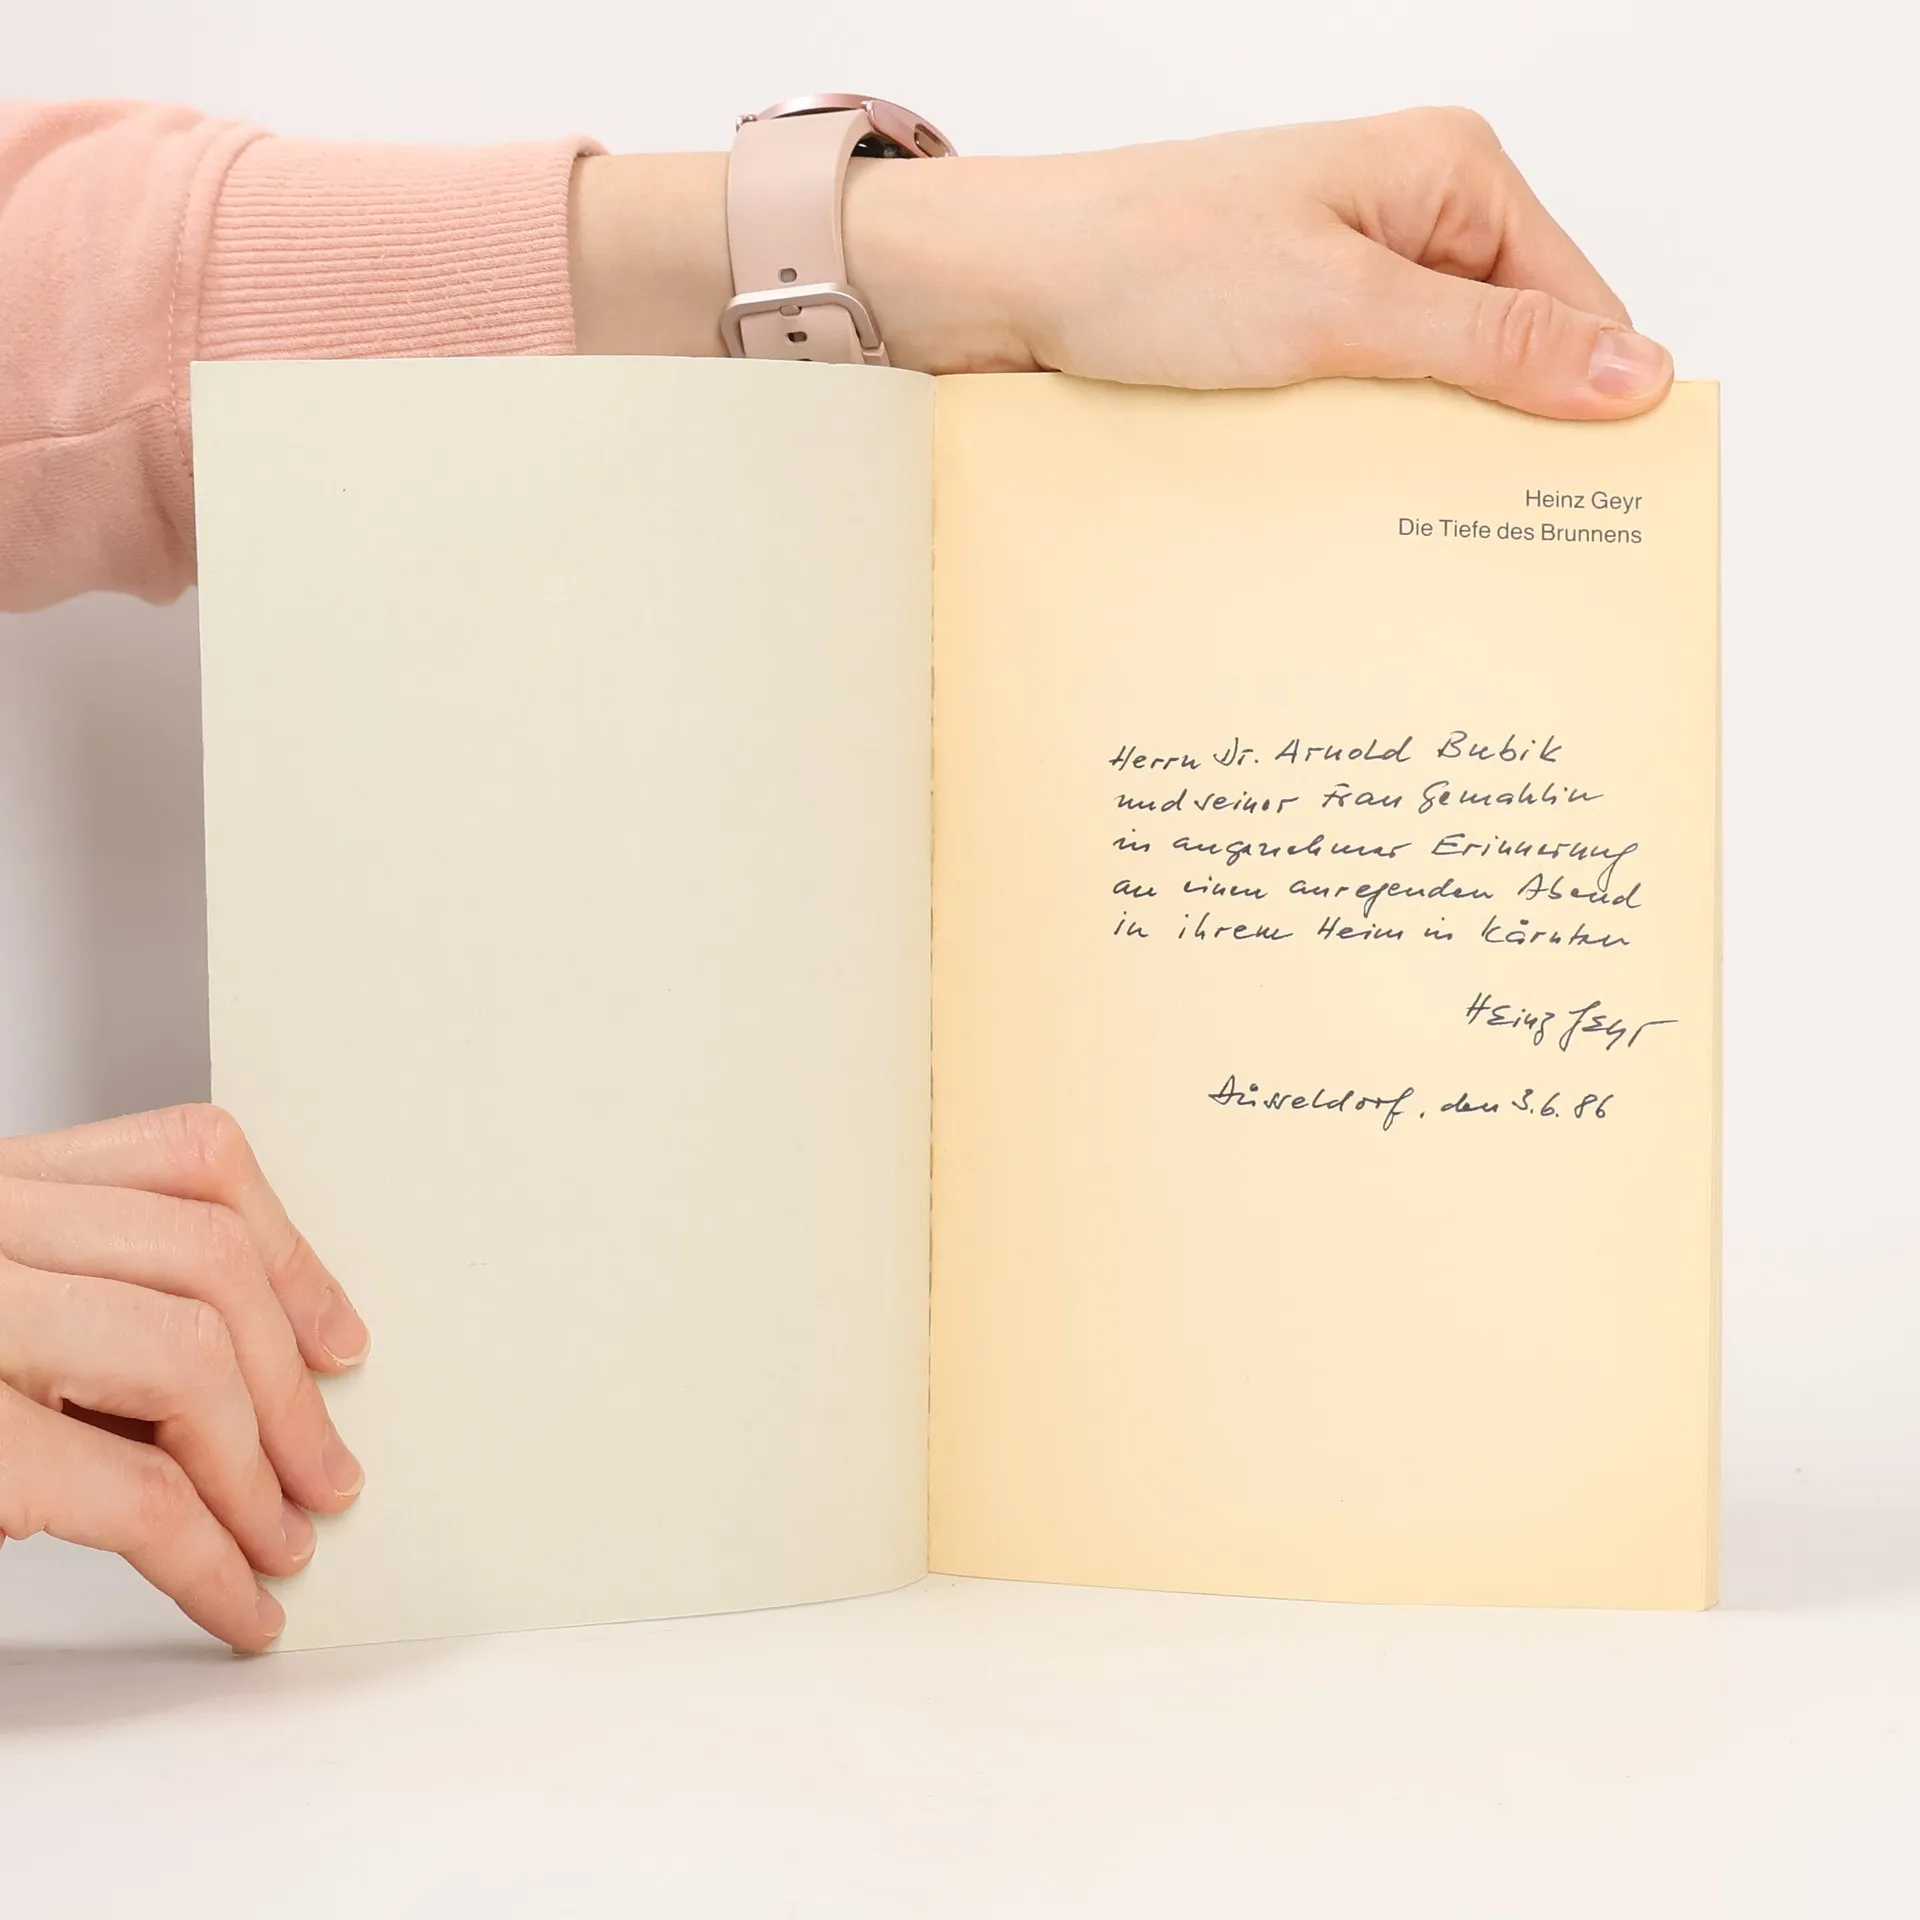 Heinz Geyr
Die Tiefe des Brunnens
Herrn Dr. Arnold Bubik
und seiner Frau Gemahlin
in angenehmer Erinnerung
an einen anregenden Abend
in ihrem Heim in Kärnten
Heinz Geyr
Düsseldorf, den 3.6.86